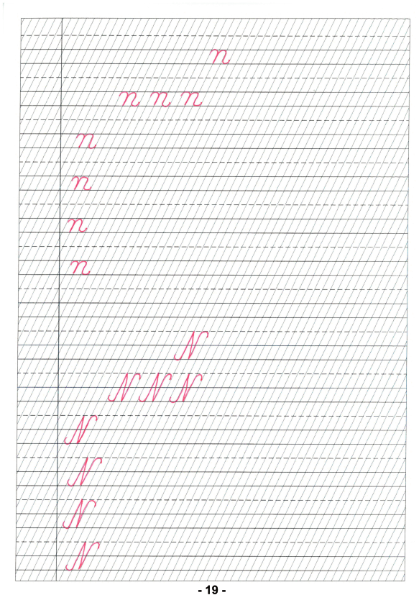 n
n n n
n
n
n
n
N
N N N
N
N
N
N
- 19 -